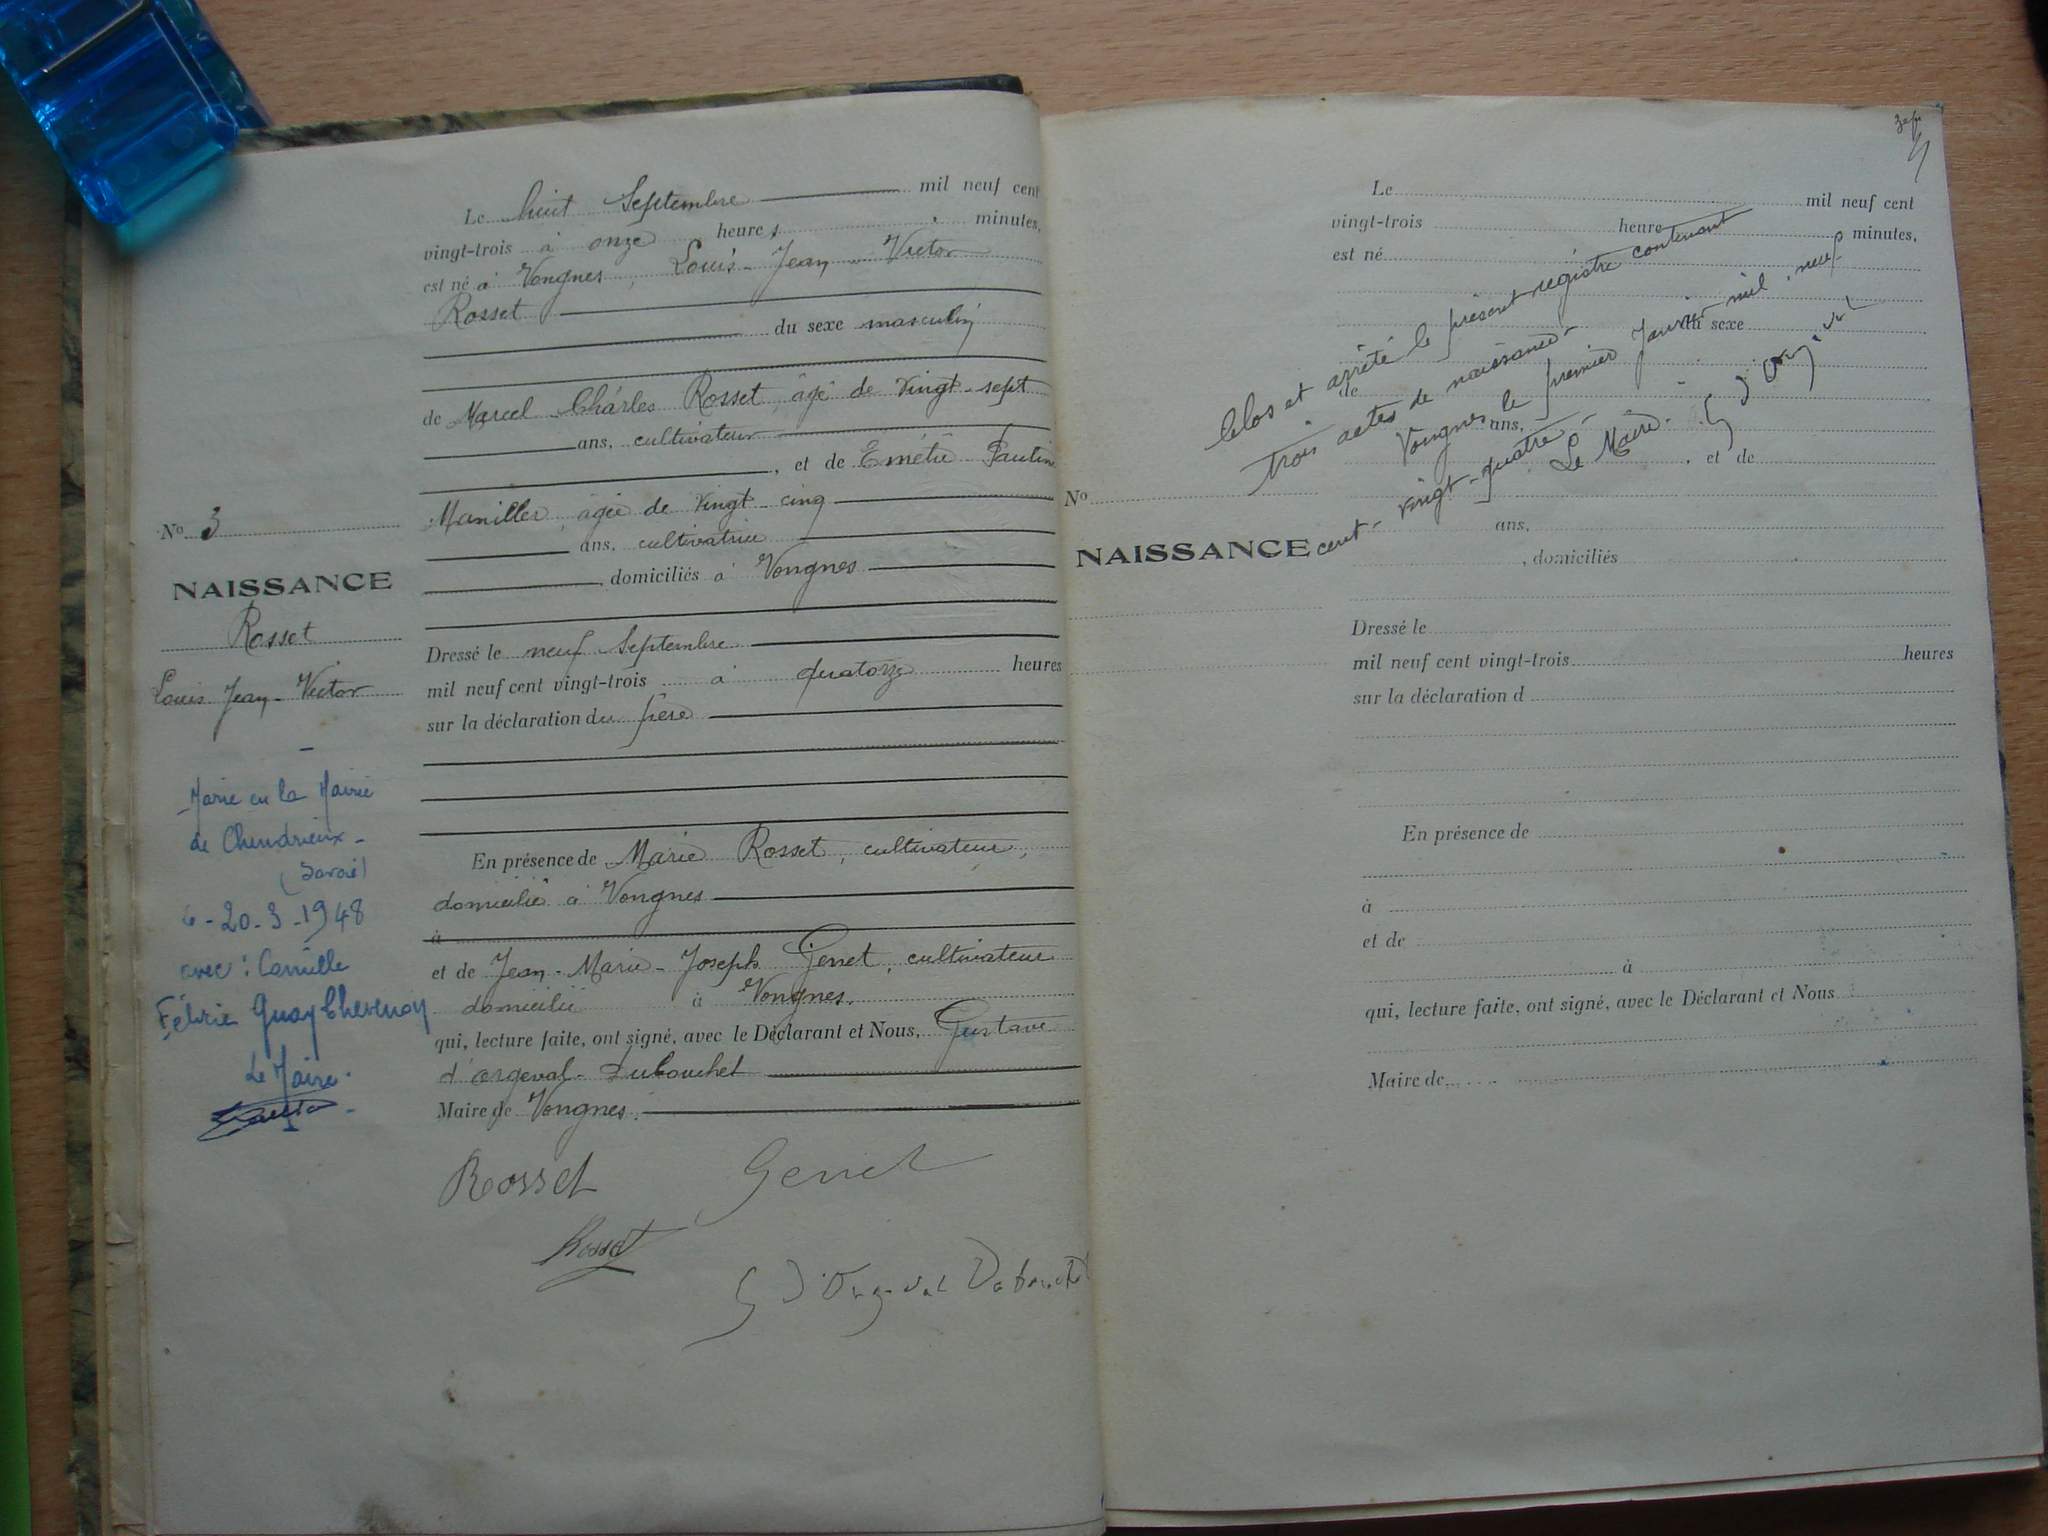 Le huit Septembre mil neuf cent
vingt-trois à onze heures minutes,
est né à Vongnes, Louis-Jean-Victor
Rosset
du sexe masculin
de Marcel Charles Rosset, âgé de vingt-sept
ans, cultivateur
, et de Emélie Pauline
âgée de vingt-cinq
ans, cultivatrice
domiciliés à Vongnes
No 3
NAISSANCE
Rosset
Louis-Jean-Victor
Dressé le neuf Septembre
mil neuf cent vingt-trois à quatorze heures
sur la déclaration du père
En présence de Marie Rosset, cultivateur,
domicilié à Vongnes
à
et de Jean-Marie-Joseph Genet, cultivateur
domicilié à Vongnes.
qui, lecture faite, ont signé, avec le Déclarant et Nous, Gustave
d'orgeval-Dubouchet
Maire de Vongnes.
Marié en la Mairie
de Chindrieux-
(Savoie)
le-20-3-1948
avec : Camille
Félicie Quay Thevenon
Le Maire.
Rosset Genet
Rosset
G d'Orgeval Dubouchet
Le mil neuf cent
vingt-trois heure minutes,
est né
du sexe
de
ans,
, et de
ans,
, domiciliés
No
NAISSANCE
Clos et arrêté le présent registre contenant
trois actes de naissance-
Vongnes le premier Janvier mil-neuf
cent-vingt-quatre-
Le Maire. G d'Orgeval
Dressé le
mil neuf cent vingt-trois heures
sur la déclaration d
En présence de
à
et de
à
qui, lecture faite, ont signé, avec le Déclarant et Nous
Maire de